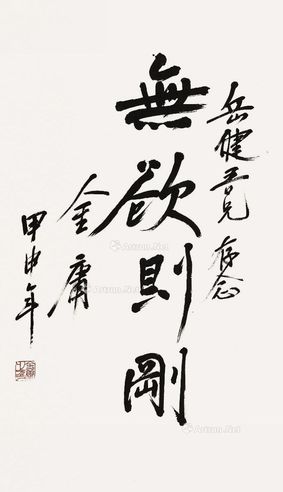 岳健吾兄 存念
無欲則剛
金庸
甲申年
Artron.Net
Artron.Net